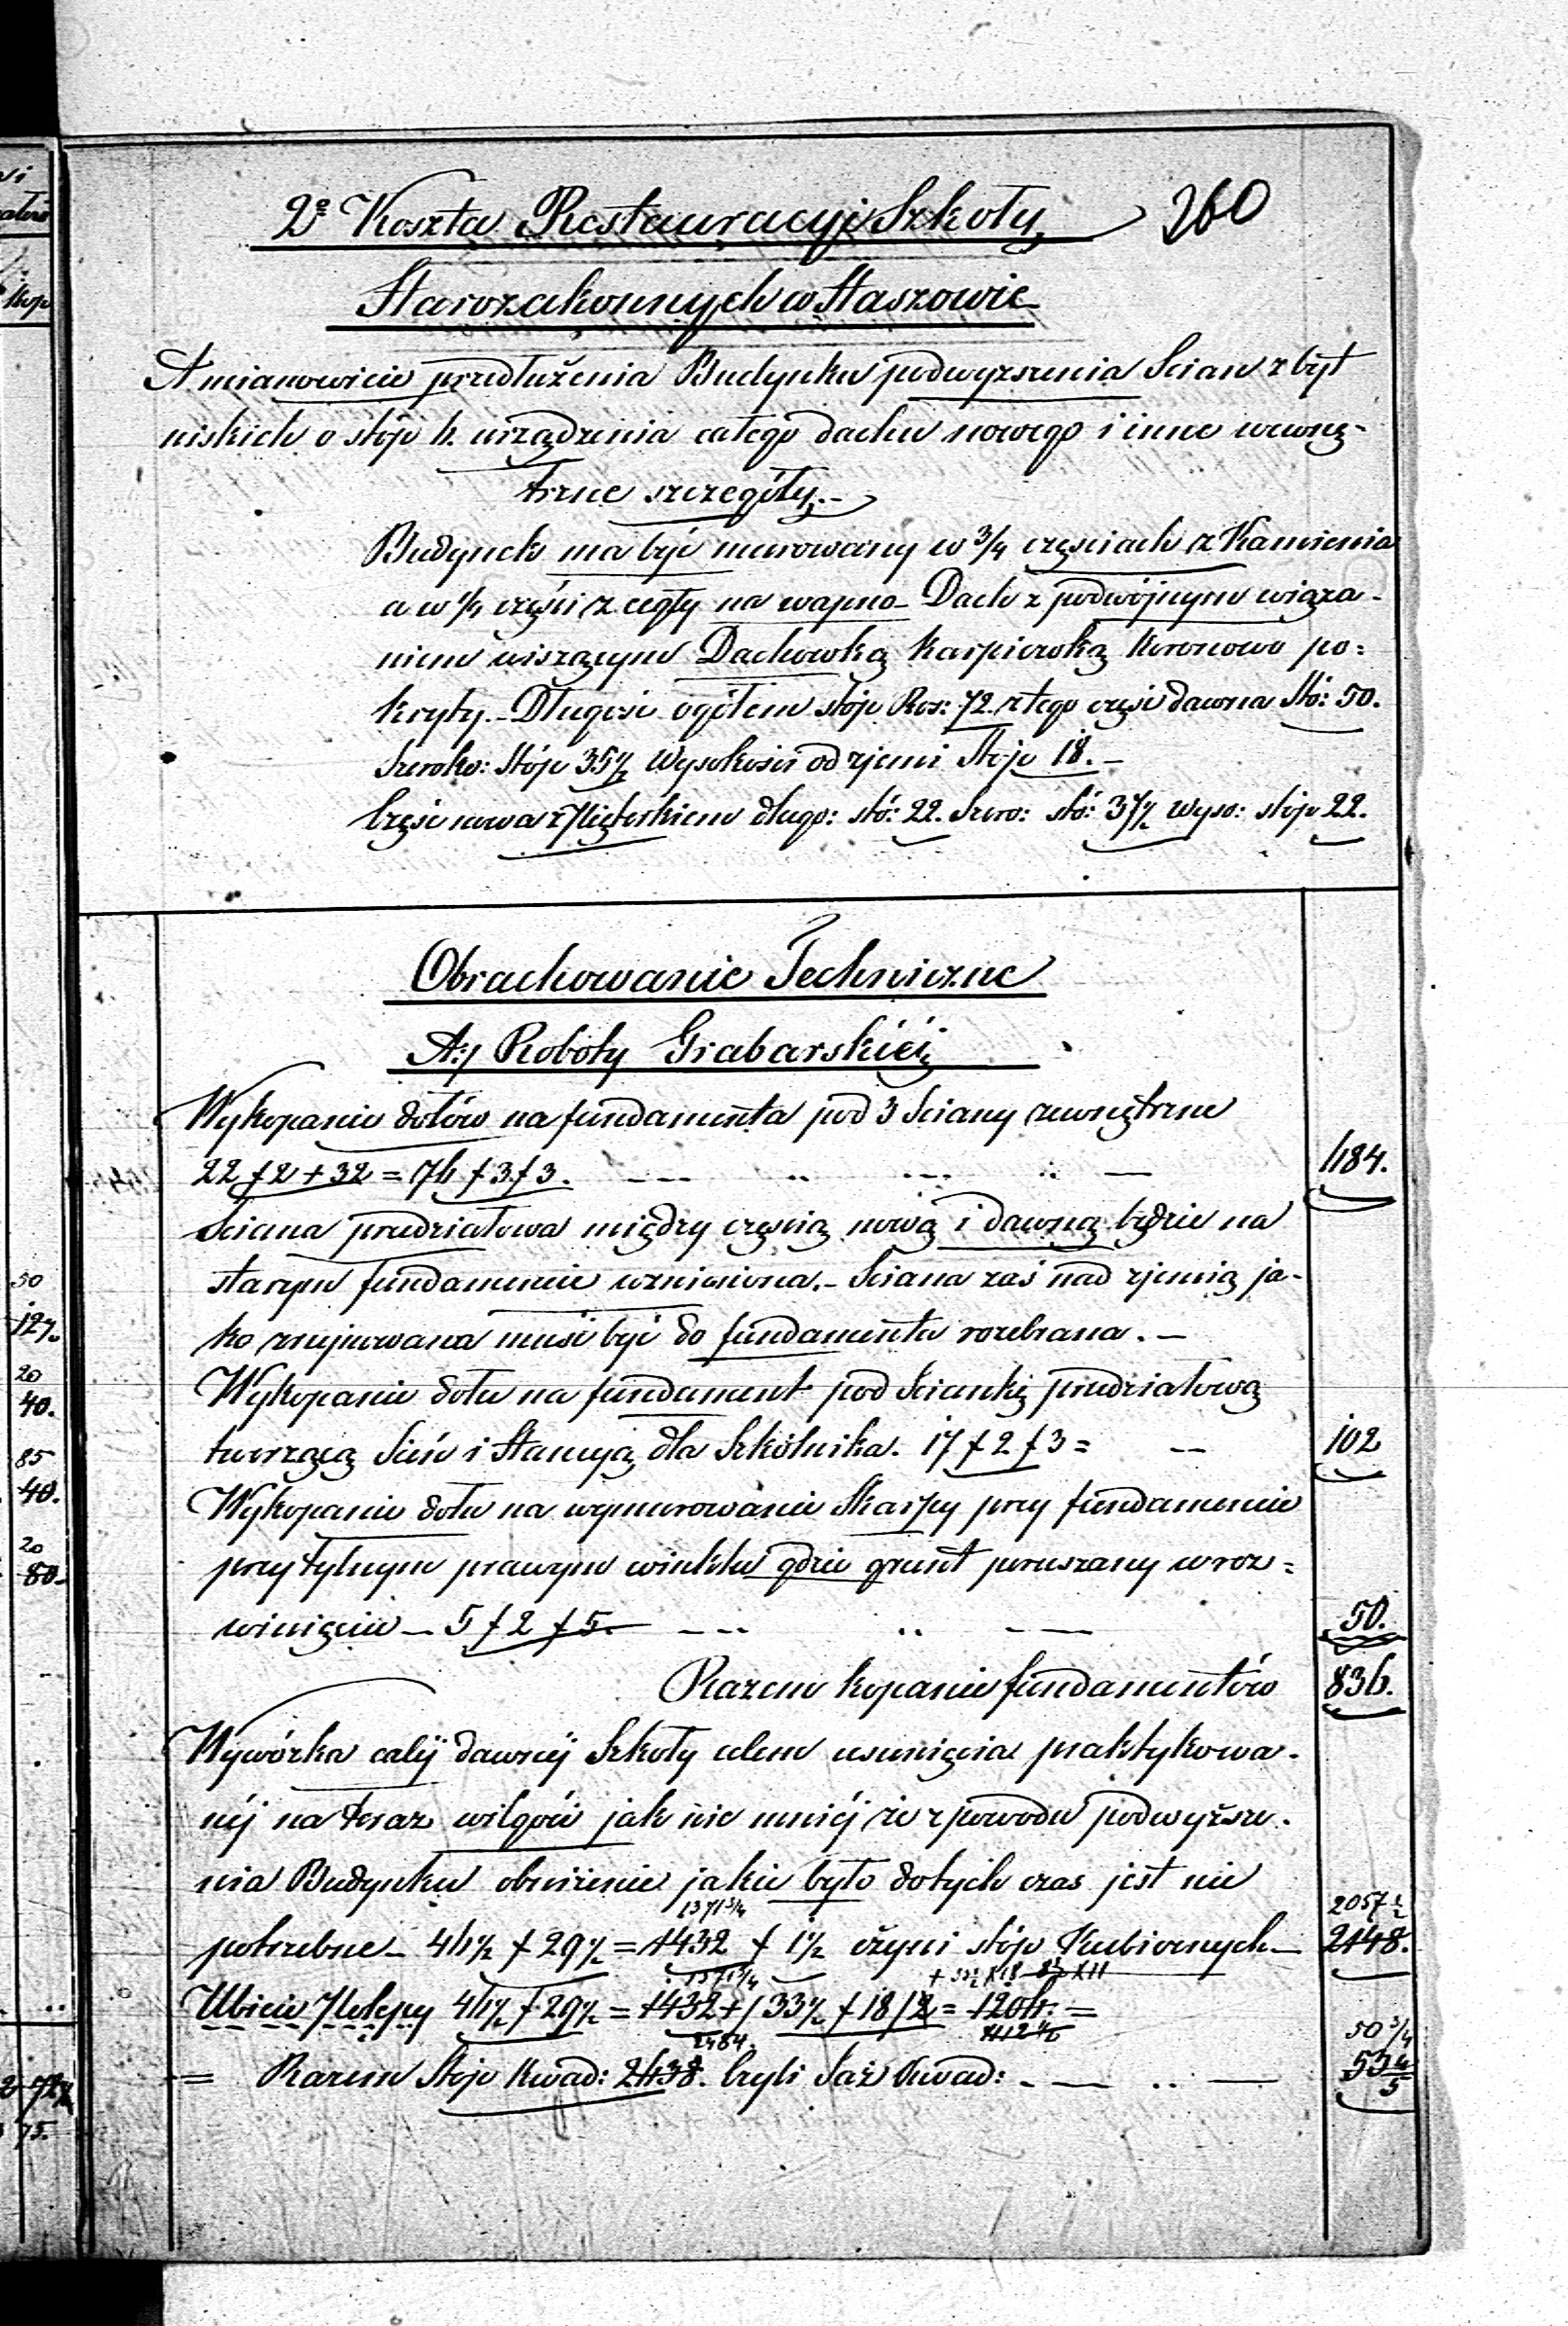 2º Koszta Restauracyi Szkoły 260
Starozakonnych w Staszowie
A mianowicie przedłużenia Budynku podwyższenia Scian zbyt
niskich o stóp 4. urządzenia całego dachu nowego i inne wewnę-
trzne szczegóły.-
Budynek ma być murowany w 3/4 częściach z Kamienia
a w 1/4 części z cegły na wapno - Dach z podwójnym wiąza-
niem wiszącym Dachowką Karpiowką Koronowo po=
kryty. - Długość ogółem stóp Ros: 72. z tego część dawna Stó: 50.
Szeroko: Stóp 35½ Wysokości od zjemi Stóp 18. -
Część nowa z Pięterkiem długo: stó: 22. Szero: stó: 37½ wyso: stóp 22.
Obrachowanie Techniczne
A:/ Roboty Grabarskiéi
Wykopanie dołów na fundamenta pod 3 Sciany zewnętrzne
22 × 2 + 32 = 76 × 3 × 3. 684.
Sciana przedziałowa między częścią nową i dawną będzie na
starym fundamencie wzniesiona. - Sciana zaś nad zjemią ja-
ko zrujnowana musi być do fundamentu rozebrana. -
Wykopanie dołu na fundament pod Sciankę przedziałową
tworzącą Sień i Stancyą dla Szkólnika. 17 × 2 × 3 = 102
Wykopanie dołu na wymurowanie Skarpy przy fundamencie
przy tylnym prawym winklu gdzie grunt poruszany w roz=
winięciu - 5 × 2 × 5. 50.
Razem kopanie fundamentów 836.
Wywózka całéj dawnéj Szkoły celem usunięcia praktykowa-
néj na teraz wilgoci jak nie mniéj że z powodu podwyższe-
nia Budynku obniżenie jakie było dotych czas jest nie
1371¾ 2057½
potrzebne - 46½ × 29½ = 1432 × 1½ czyni stóp Kubicznych - 2148.
1371¾
Ubicie Polepy 46½ × 29½ = 1432 + / 33½ × 18 / 2 = 1206. =
2484. 50¾
= Razem Stóp Kwad: 2638. Czyli Saż Kwad: 53 4/5